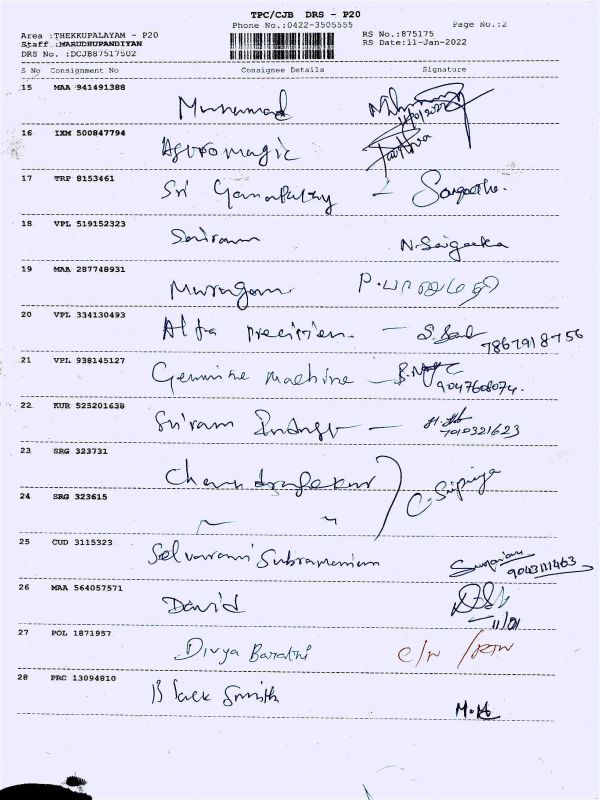 TPC/CJB DRS - P20
Phone No.:0422-3505555
Page No.:2
Area :THEKKUPALAYAM - P20
RS No.:875175
Staff :MARUDHUPANDIYAN
RS Date:11-Jan-2022
DRS No. :DCJB87517502
S No Consignment No Consignee Details Signature
15 MAA 941491388 Muhamad 11/01/2022
16 IXM 500847794 Agromagic
17 TRP 8153461 Sri Ganapathy – Sangeetha.
18 VPL 519152323 Sairam
19 MAA 287748931 Murugan
20 VPL 334130493 Alfa precision – 7867918756
21 VPL 938145127 Genuine machine – 9047608074.
22 KUR 525201638 Sriram – 7010321623
23 SRG 323731 Chandrasekar
24 SRG 323615 C. Sripriya
25 CUD 3115323 Selvarani Subramaniam
26 MAA 564057571 David 11/01
27 POL 1871957 Divya Barathi C/N /RTN
28 PRC 13094810 Smith